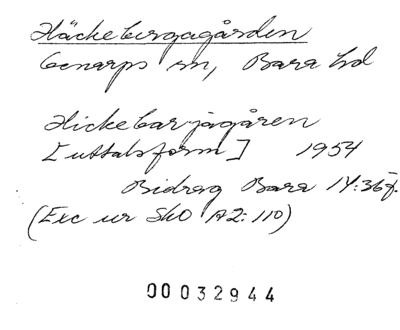 Häckebergagården
Genarps sn, Bara hd
Hickebarjagåren
[uttalsform] 1954
Bidrag Bara 14:36f.
(Exc ur SkO A2:110)
00032944